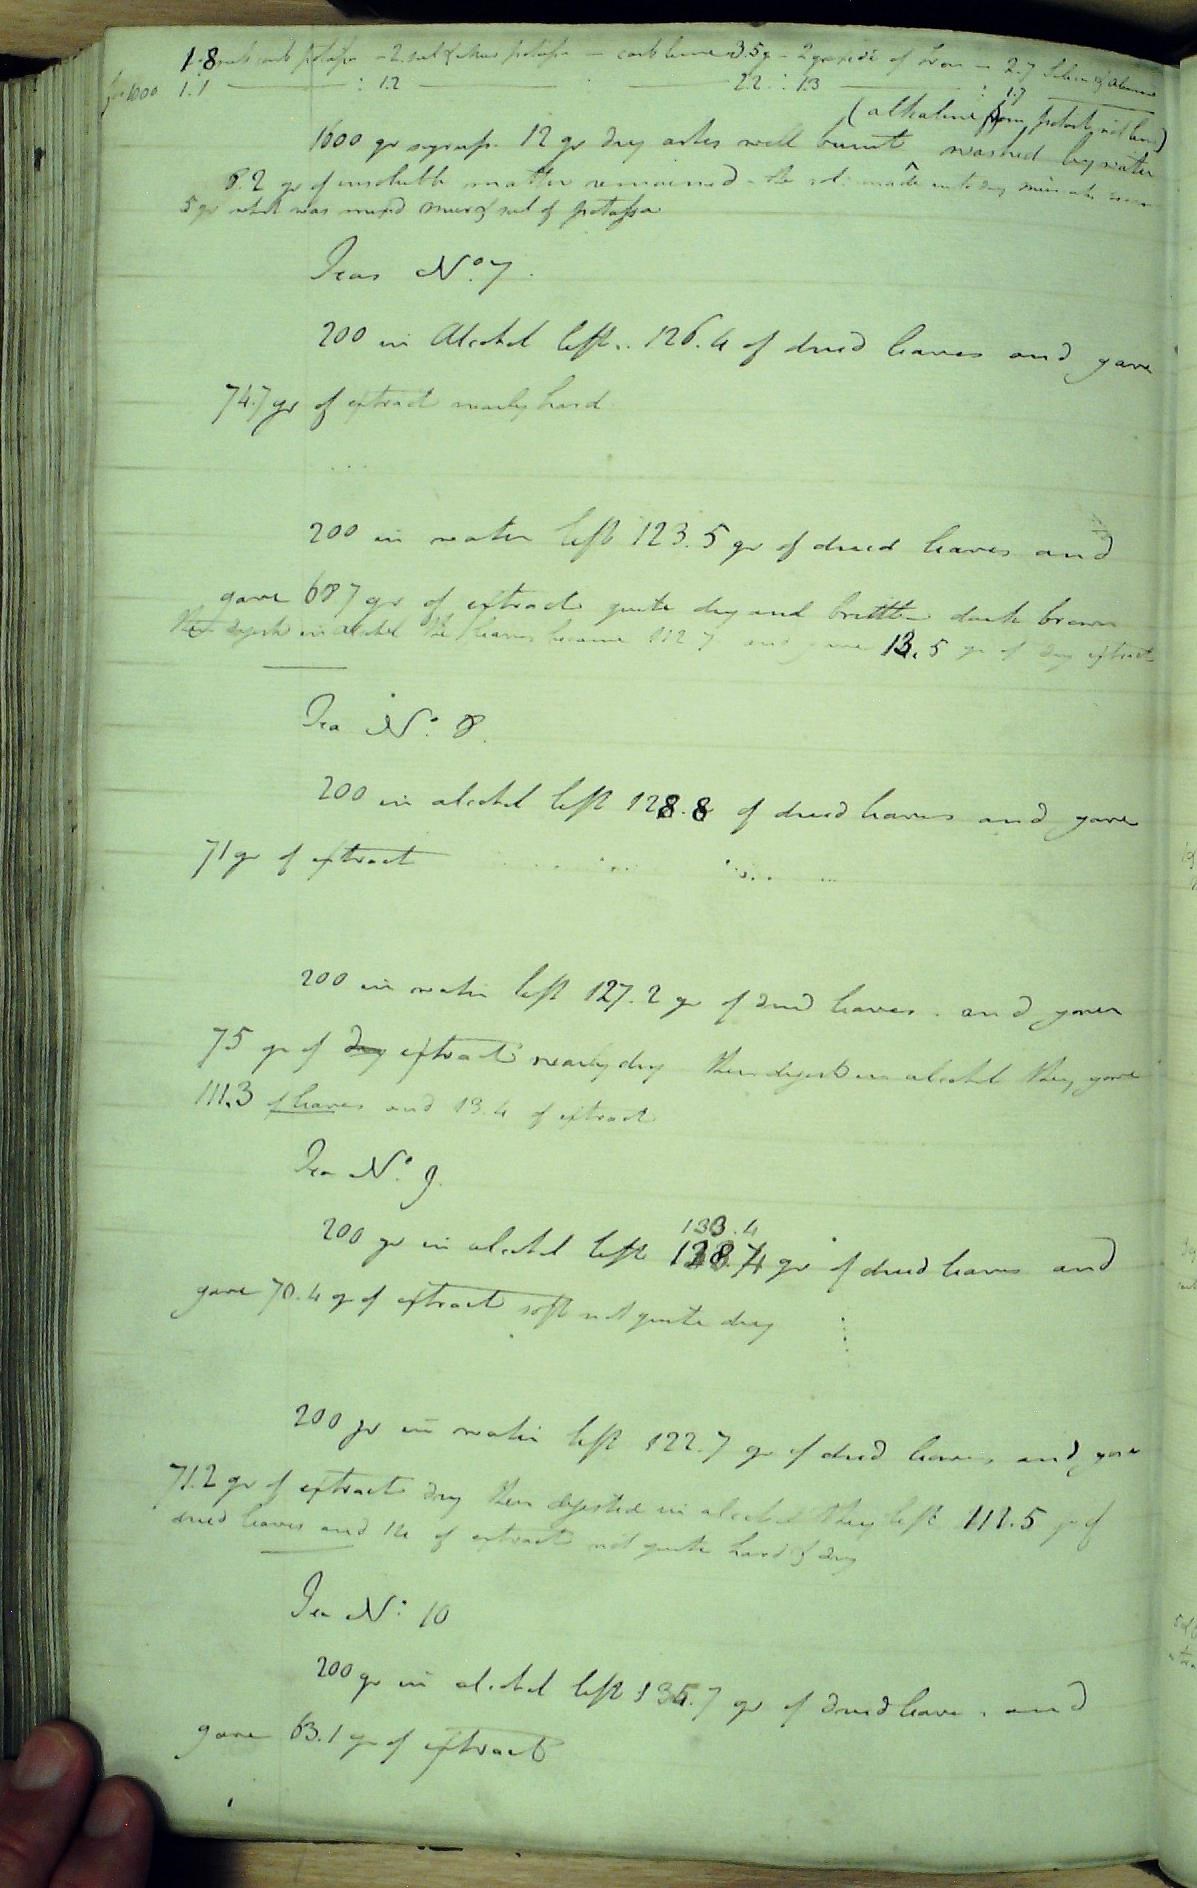 1.8 sub carb potassa - 2 sul & mur potassa - carb lime 3.5 gr - 2 gr oxide of Iron - 2.7 Silica & alumina
for 1000 1.1 : 1.2 : 2.2 : 1.3 : 1.7
(alkaline from potash not lime)
1600 gr 12 gr dry ashes well burnt washed by water
8.2 gr of insoluble matter remained - the sol: made into dry muriate
5 gr what was mixed mur & sul of potassa
Teas No. 7.
200 in Alcohol left .. 126.4 of dried leaves and gave
74.7 gr of extract nearly hard
200 in water left 123.5 gr of dried leaves and
gave 68 7 gr of extract quite dry and brittle dark brown
then digested in alcohol the leaves became 112 7 and gave 13.5 gr of dry extract
Tea No. 8.
200 in alcohol left 128.8 of dried leaves and gave
71 gr of extract
200 in water left 127.2 gr of dried leaves . and gave
75 gr of dry extract nearly dry then digested in alcohol they gave
111.3 of leaves and 13.4 of extract
Tea No. 9.
133.4
200 gr in alcohol left gr of dried leaves and
gave 70.4 gr of extract soft not quite dry
200 gr in water left 122.7 gr of dried leaves and gave
71.2 gr of extract dry then digested in alcohol they left 112.5 gr of
dried leaves and 14 of extract not quite hard & dry
Tea No. 10
200 gr in alcohol left 135.7 gr of dried leaves . and
gave 63.1 gr of extract